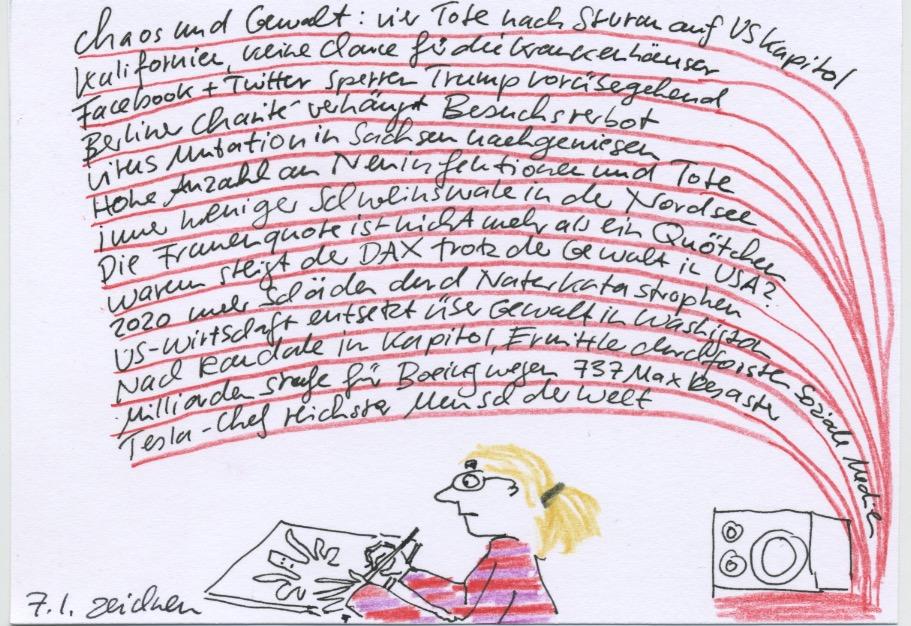 Chaos und Gewalt: vier Tote nach Sturm auf US Kapitol
Kalifornien, keine Chance für die Krankenhäuser
Facebook + Twitter sperren Trump vorübergehend
Berliner Charité verhängt Besuchsverbot
Virus Mutation in Sachsen nachgewiesen
Hohe Anzahl an Neuinfektionen und Tote
immer weniger Schweinswale in der Nordsee
Die Frauenquote ist nicht mehr als ein Quötchen
warum steigt der DAX trotz der Gewalt in USA?
2020 mehr Schäden durch Naturkatastrophen
US-Wirtschaft entsetzt über Gewalt in Washington
Nach Randale im Kapitol, Ermittler durchforsten soziale Medien
Milliardenstrafe für Boeing wegen 737 Max Desaster
Tesla-Chef reichster Mensch der Welt
7.1. zeichnen